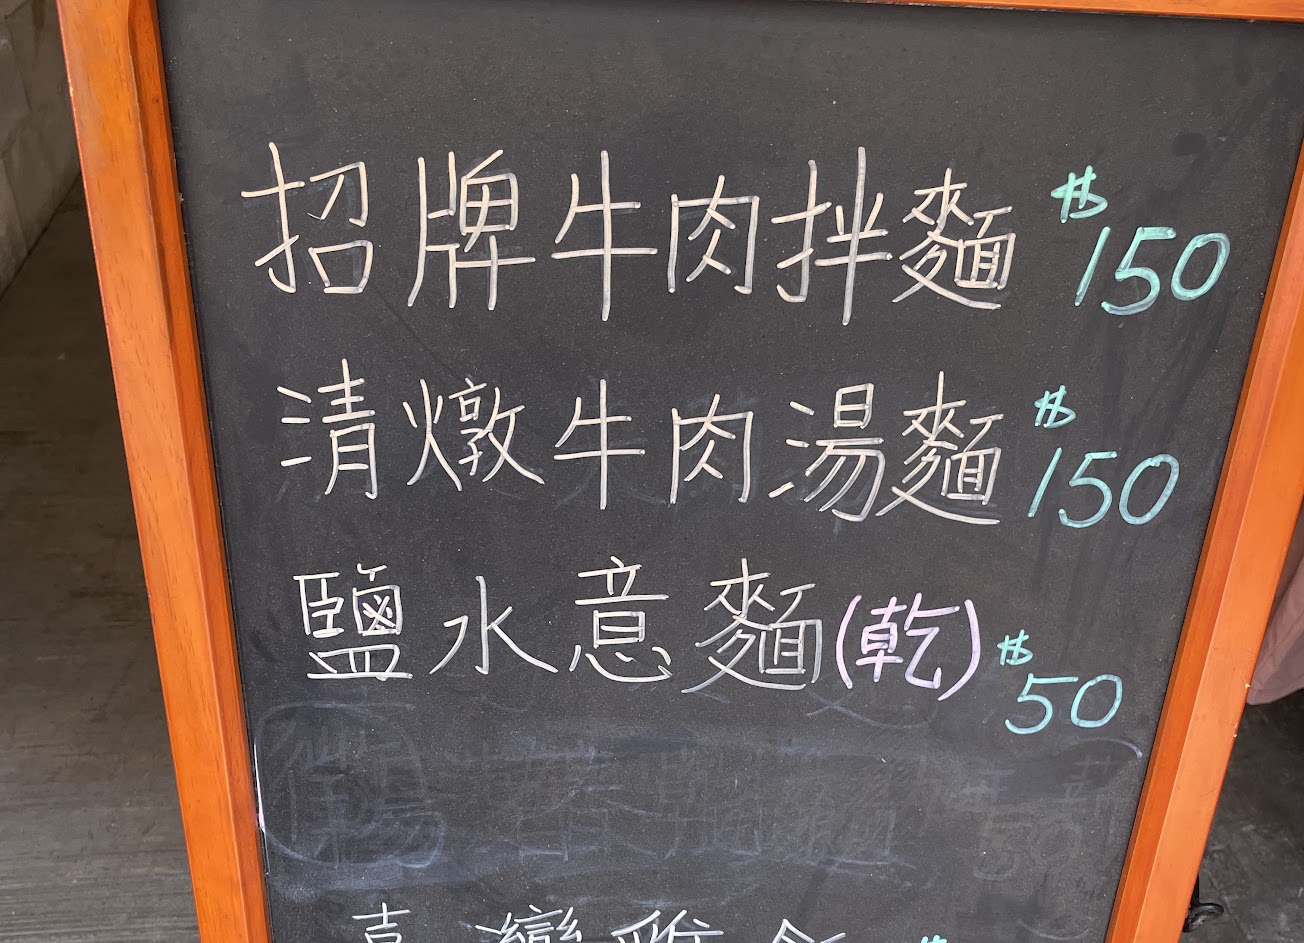 招牌牛肉拌麵 $150
清燉牛肉湯麵 $150
鹽水意麵(乾) $50